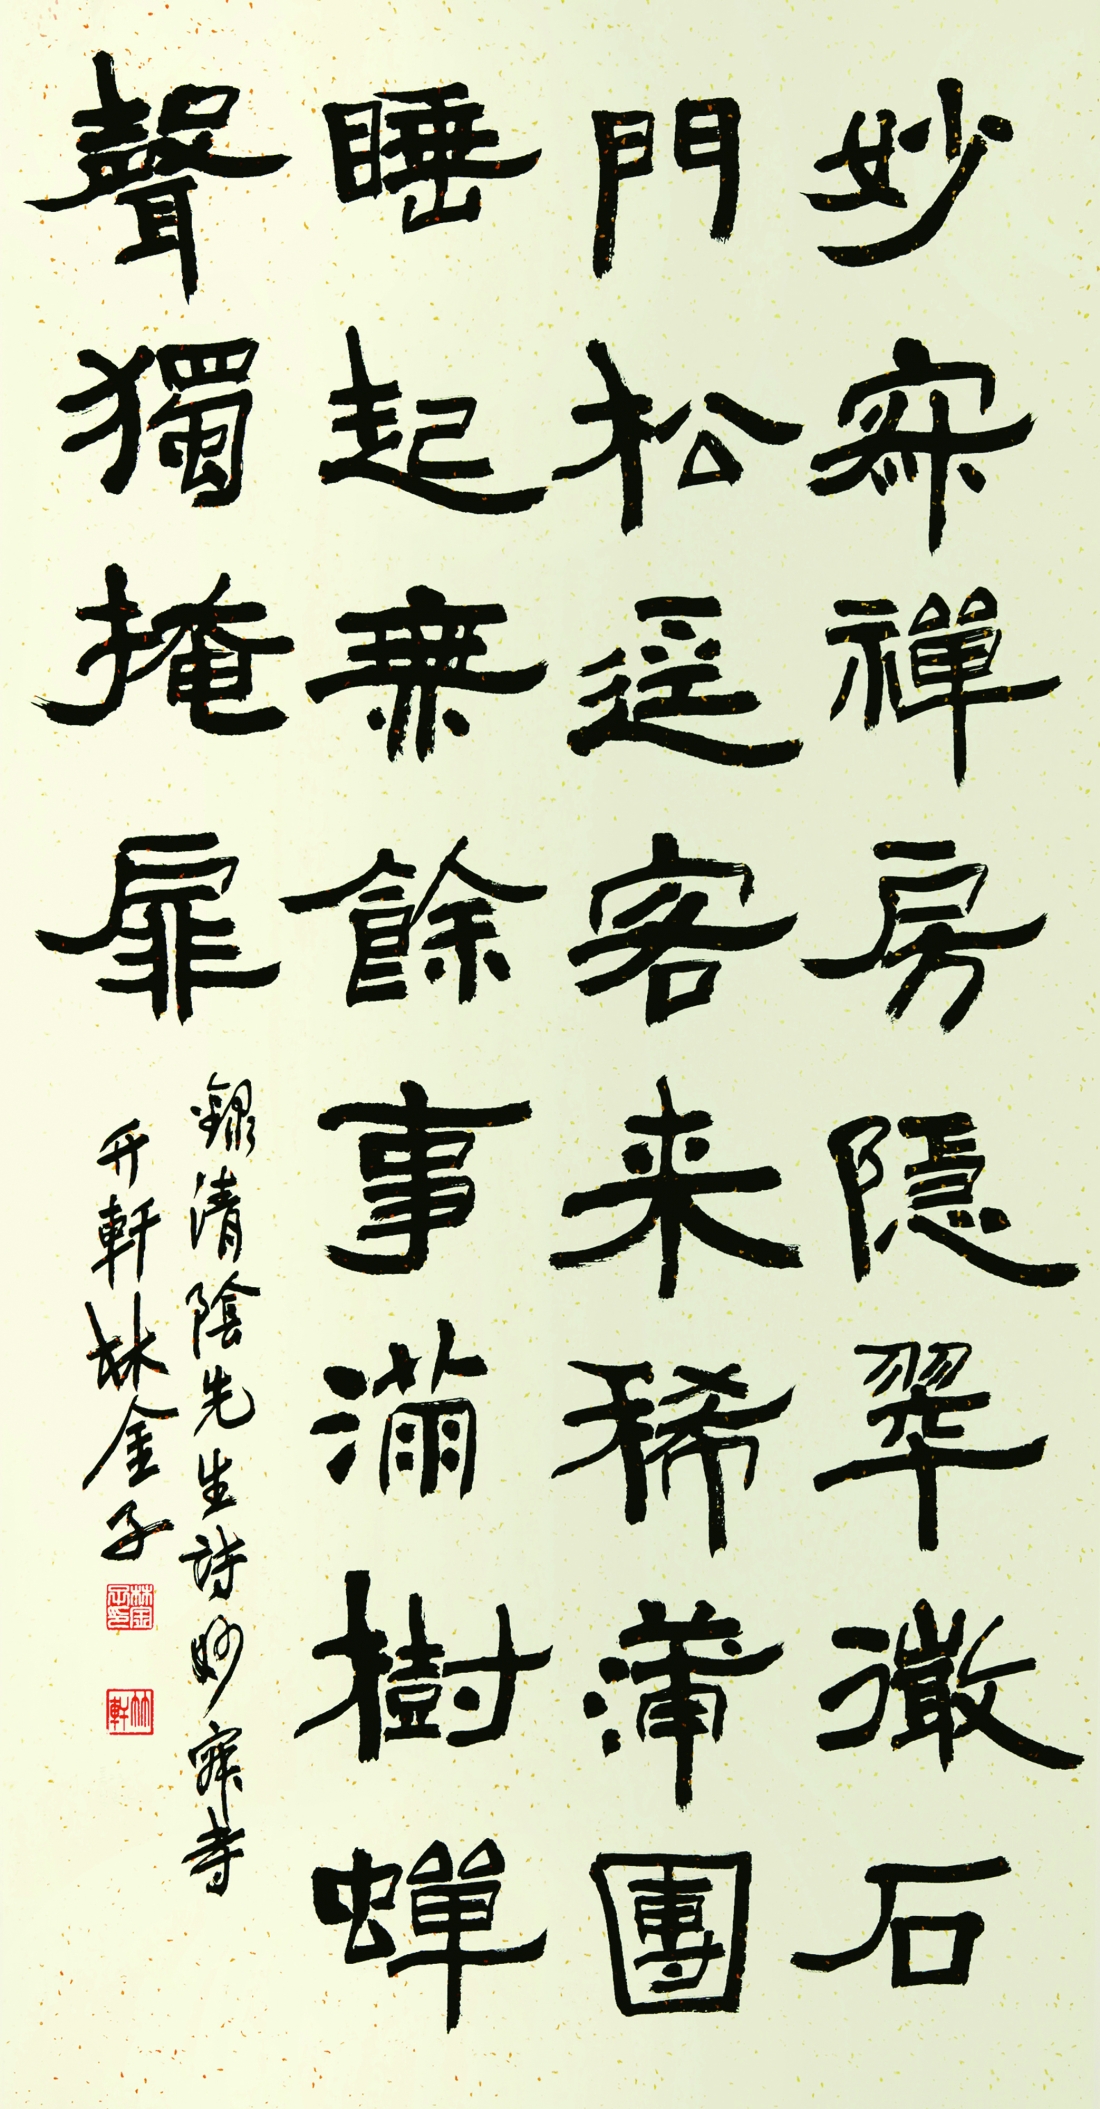 妙寂禪房隱翠微石
門松逕客来稀蒲團
睡起無餘事滿樹蟬
聲獨掩扉
錄清陰先生詩妙寂寺
竹軒林金子
林金子印
竹軒